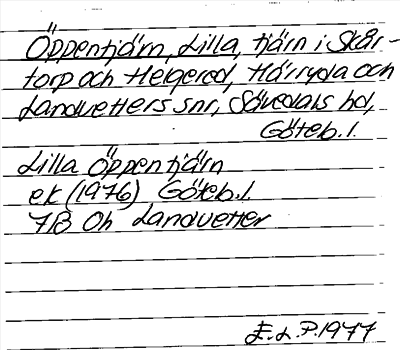 Öppentjärn, Lilla, tjärn i Skår-
torp och Helgered, Härryda och
Landvetters snr, Sävedals hd,
Göteb. l.
Lilla Öppentjärn
ek (1976) Göteb. l.
7B 0h Landvetter
E. L. P. 1977